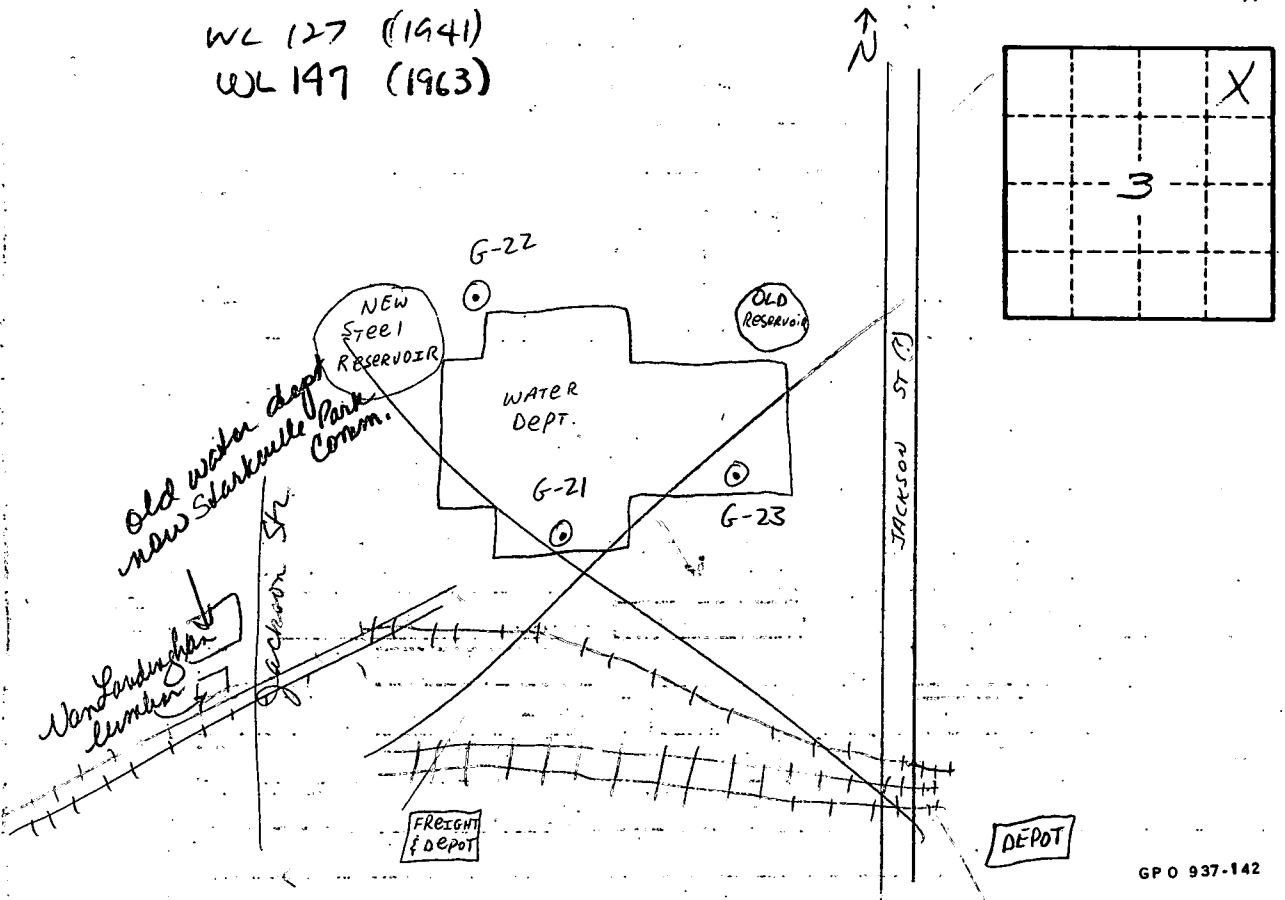 WL 127 (1941)
WL 147 (1963)
N
X
3
G-22
NEW
STEEL
RESERVOIR
OLD
RESERVOIR
WATER
DEPT.
G-21
G-23
JACKSON ST (?)
old water dept
now Starkville Park
Comm.
Jackson St.
VanLandingham
lumber
FREIGHT
& DEPOT
DEPOT
GPO 937-142